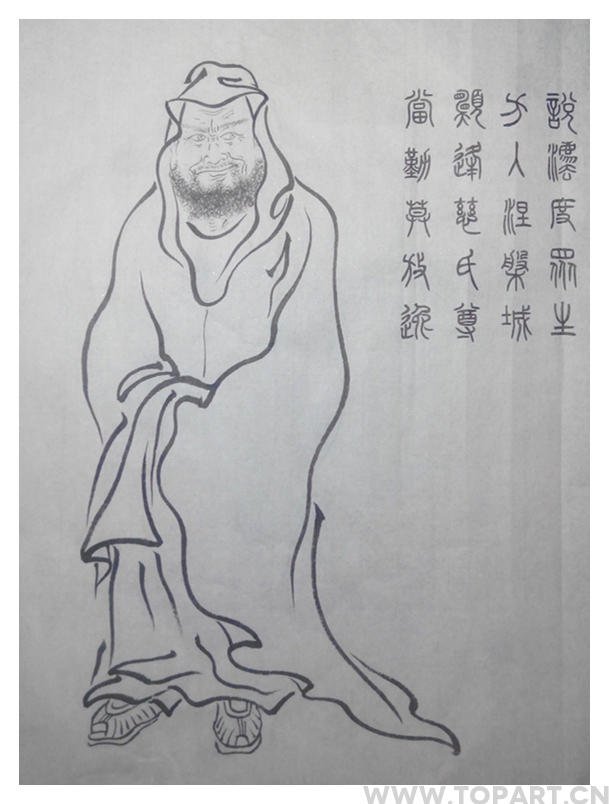 說灋度眾生
方入涅槃城
願逢慈氏尊
當勤莫放逸
WWW.TOPART.CN